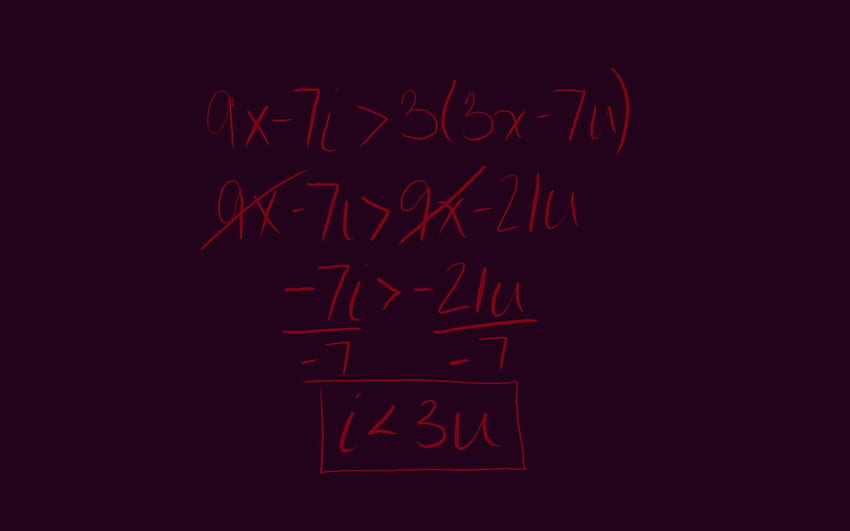 9x-7i>3(3x-7u)
9x-7i>9x-21u
-7i>-21u
-7 -7
i<3u